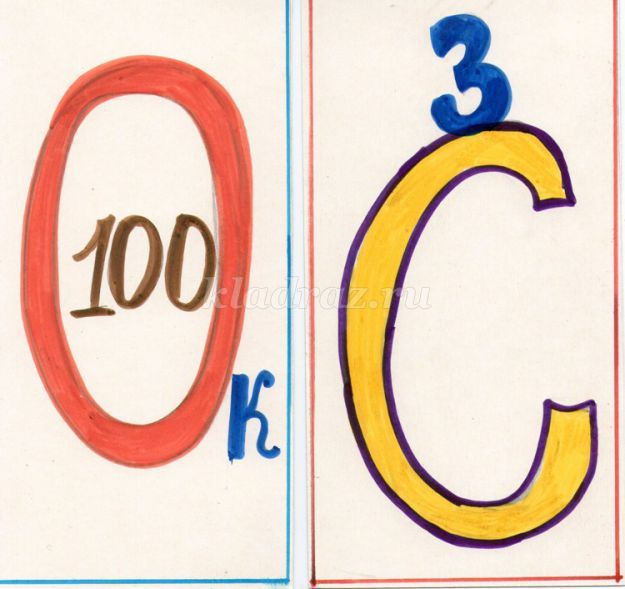 О
100
к
3
С
kladraz.ru